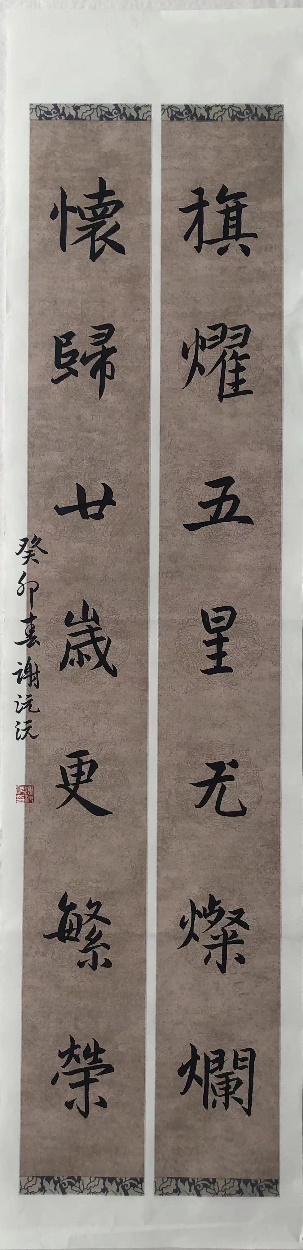 旗耀五星尤燦爛
懷歸廿歲更繁榮
癸卯春謝沅沅